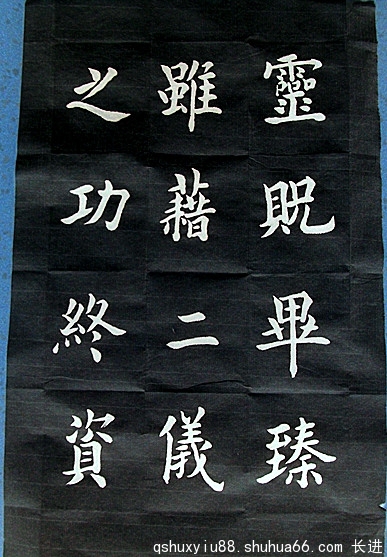 靈貺畢臻
雖藉二儀
之功終資
qshuxyiu88.shuhua66.com 长进